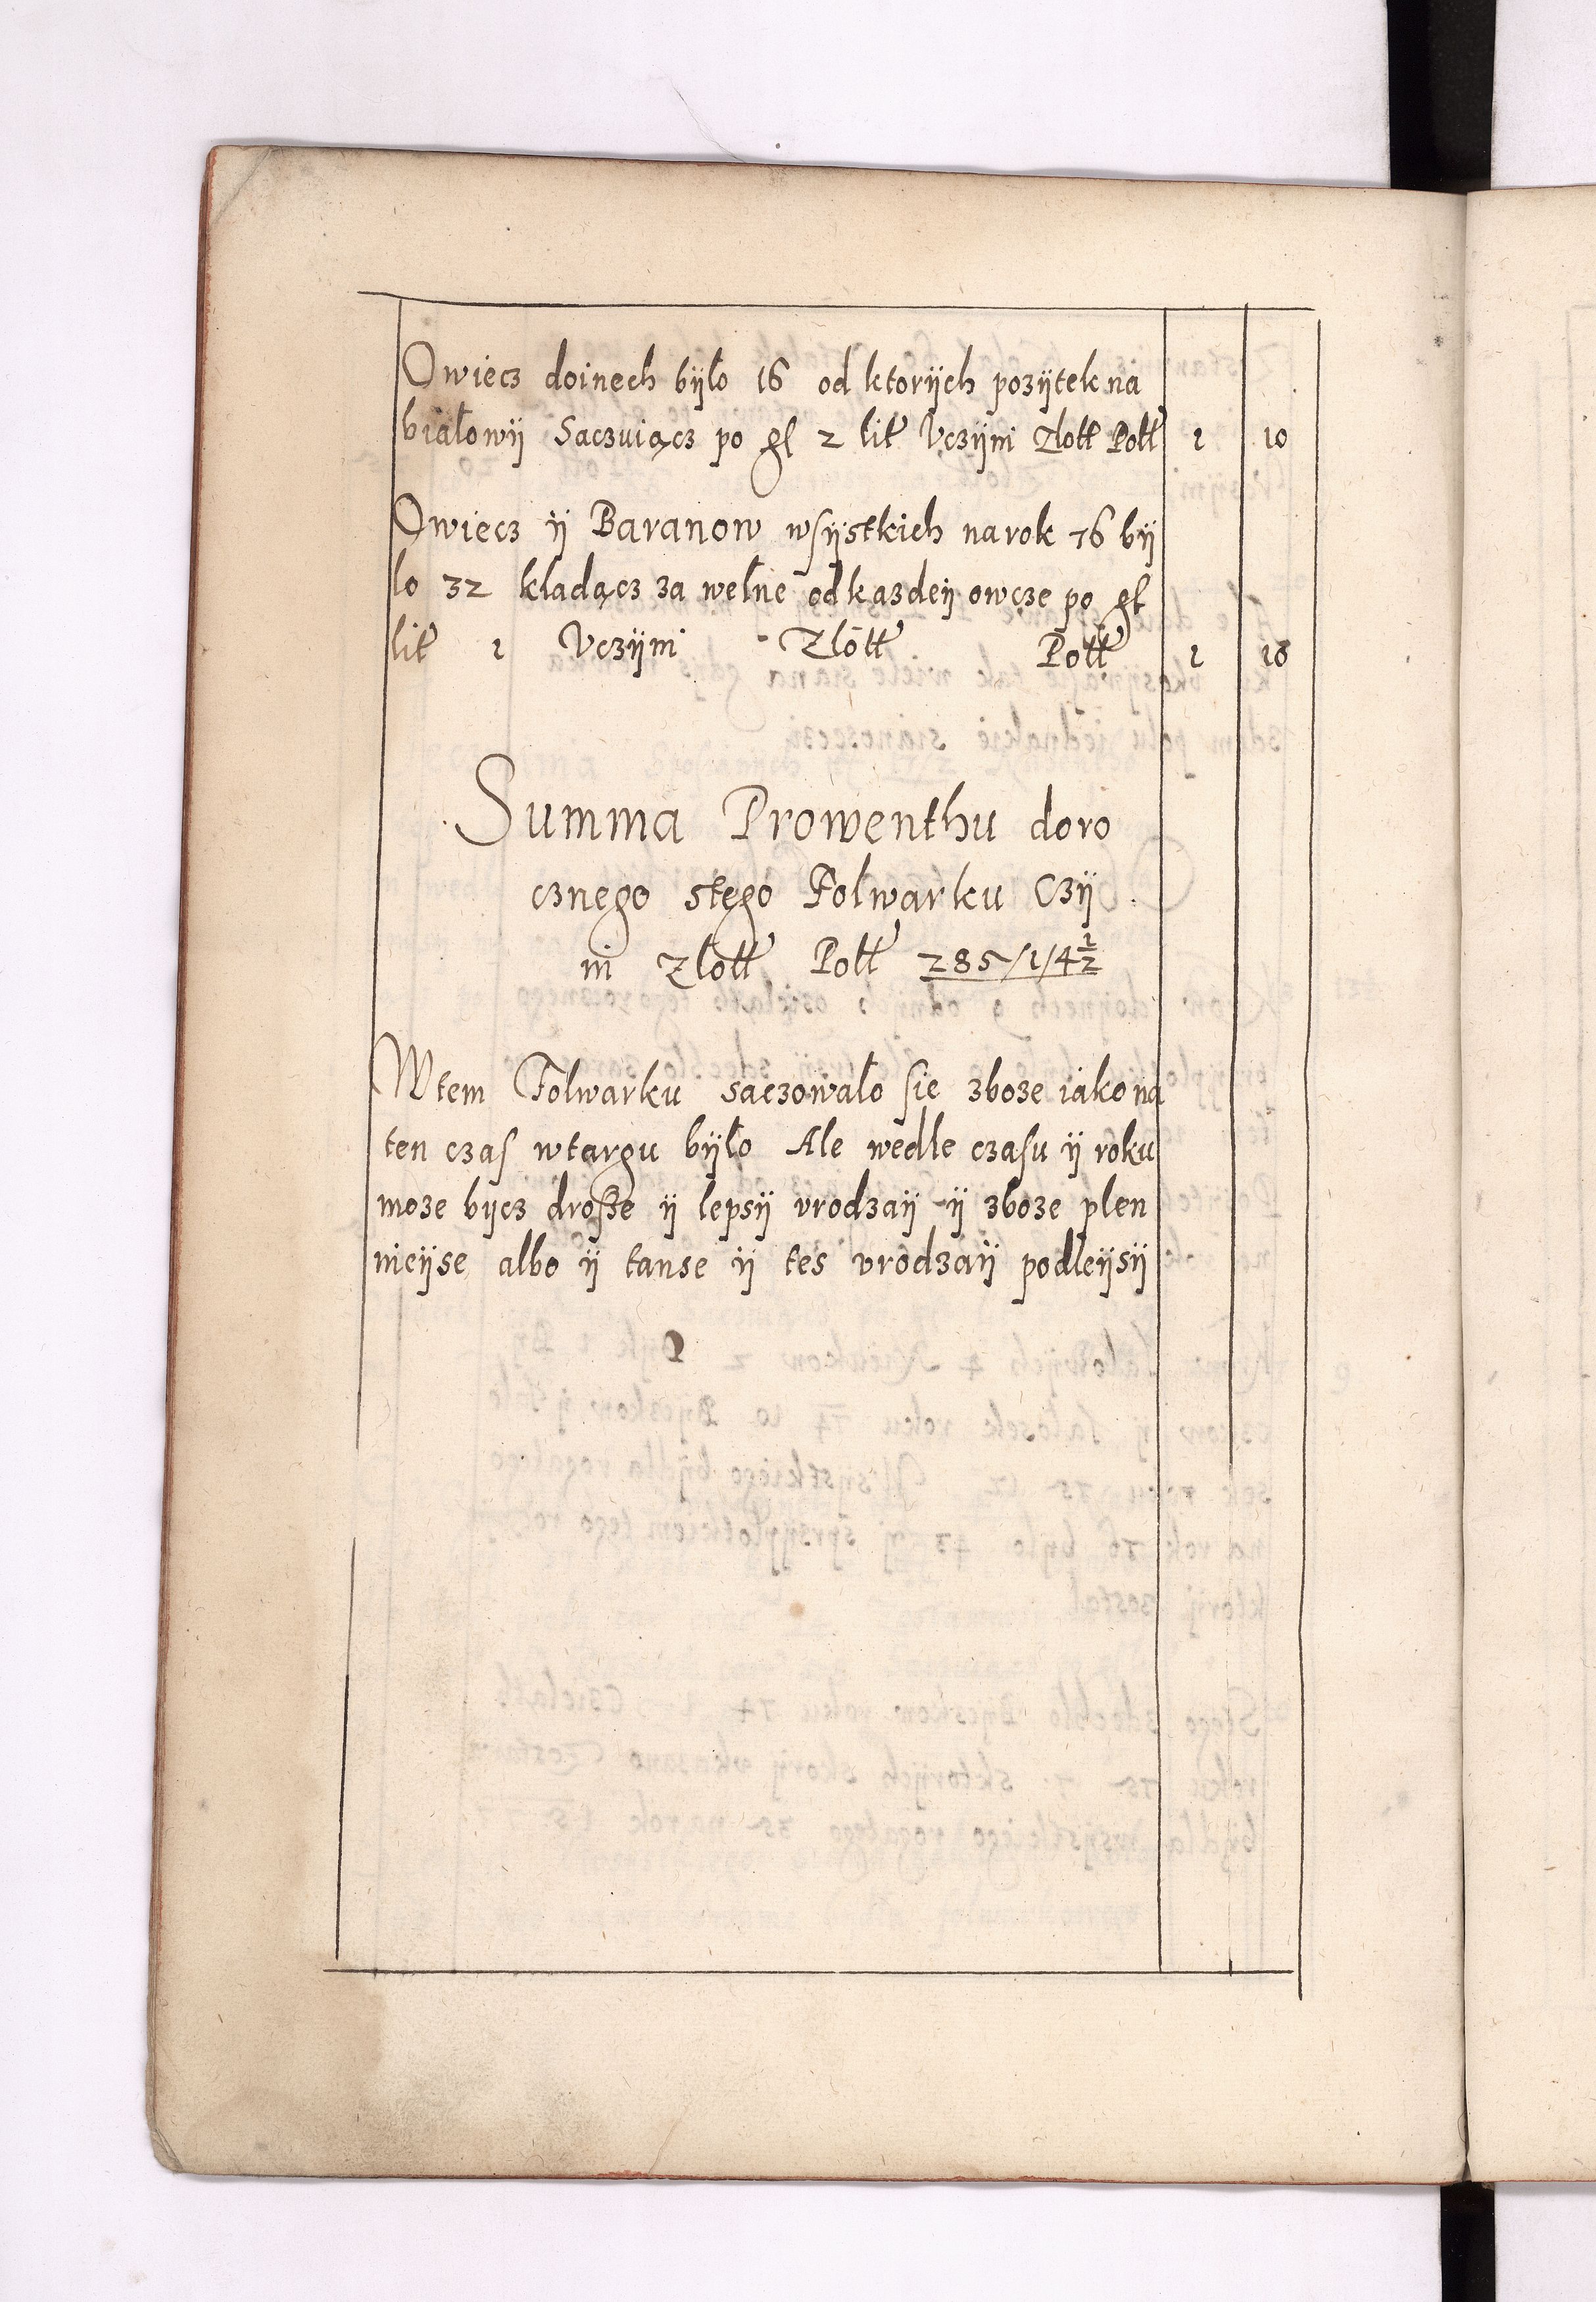 Owiecz doinech bÿlo 16 od ktorÿch pozÿtek na
białowÿ Saczuiącz po gl 2 lit Vczÿni Zlott Poll 1 10
Owiecz ÿ Baranow wsÿstkich na rok 76 bÿ
lo 32 kładącz za welne od kazdeÿ owcze po gl
lit 1 Vczÿni Zlott Poll 1 10
Summa Prowenthu doro
cznego stego Folwarku Czÿ
ni Zlott Poll 285/1/4 1/2
W tem Folwarku saczowalo sie zboze iako na
ten czas w targu bÿlo Ale wedle czasu ÿ roku
moze bÿcz drosze ÿ lepsÿ vrodzaÿ ÿ zboze plen
nieÿse albo ÿ tanse ÿ tes vrodzaÿ podleÿsÿ